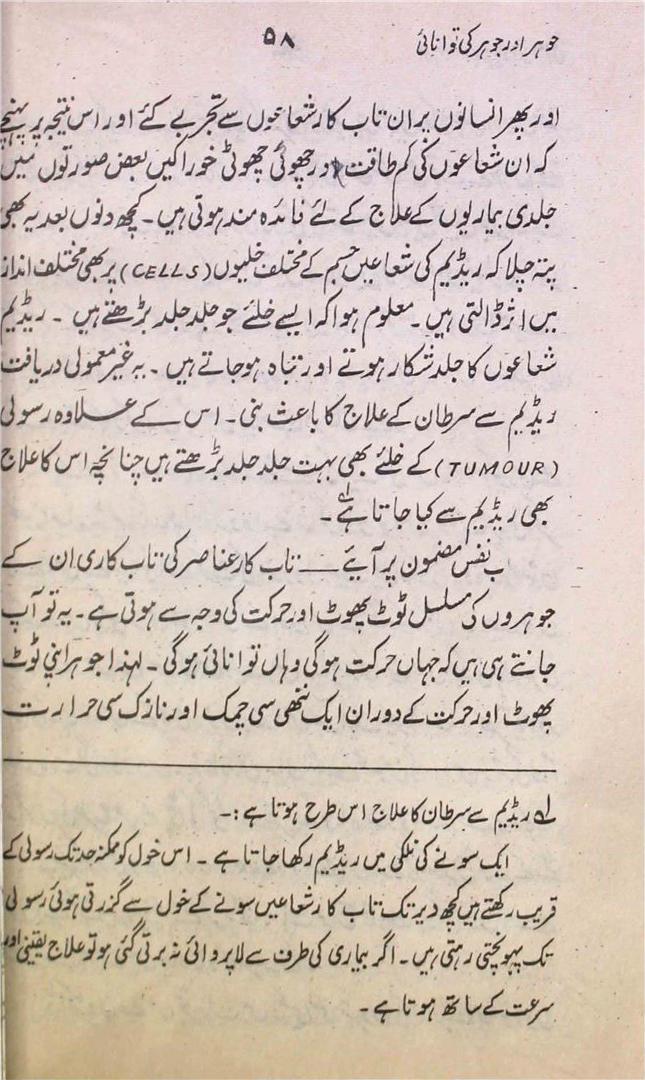 جوہر اور جوہر کی توانائی
۵۸
اور پھر انسانوں پر ان تاب کار شعاعوں سے تجربے کئے اور اس نتیجہ پر پہنچے
کہ ان شعاعوں کی کم طاقت اور چھوٹی چھوٹی خوراکیں بعض صورتوں میں
جلدی بیماریوں کے علاج کے لئے فائدہ مند ہوتی ہیں۔ کچھ دنوں بعد یہ بھی
پتہ چلا کہ ریڈیم کی شعاعیں جسم کے مختلف خلیوں (CELLS) پر بھی مختلف انداز
میں اثر ڈالتی ہیں۔ معلوم ہوا کہ ایسے خلئے جو جلد جلد بڑھتے ہیں ۔ ریڈیم
شعاعوں کا جلد شکار ہوتے اور تباہ ہو جاتے ہیں ۔ یہ غیر معمولی دریافت
ریڈیم سے سرطان کے علاج کا باعث بنی۔ اس کے علاوہ رسولی
(TUMOUR) کے خلئے بھی بہت جلد جلد بڑھتے ہیں چنانچہ اس کا علاج
بھی ریڈیم سے کیا جاتا ہے لہ ۔
ب نفس مضمون پر آیئے ـــــ تاب کار عناصر کی تاب کاری ان کے
جوہروں کی مسلسل ٹوٹ پھوٹ اور حرکت کی وجہ سے ہوتی ہے۔ یہ تو آپ
جانتے ہی ہیں کہ جہاں حرکت ہوگی وہاں توانائی ہوگی۔ لہذا جوہر اپنی ٹوٹ
پھوٹ اور حرکت کے دوران ایک ننھی سی چمک اور نازک سی حرارت
لہ ریڈیم سے سرطان کا علاج اس طرح ہوتا ہے :۔
ایک سونے کی نلکی میں ریڈیم رکھا جاتا ہے ۔ اس خول کو ممکنہ حد تک رسولی کے
قریب رکھتے ہیں کچھ دیر تک تاب کار شعاعیں سونے کے خول سے گزرتی ہوئی رسولی
تک پہونچتی رہتی ہیں۔ اگر بیماری کی طرف سے لاپروائی نہ برتی گئی ہو تو علاج یقینی اور
سرعت کے ساتھ ہوتا ہے ۔